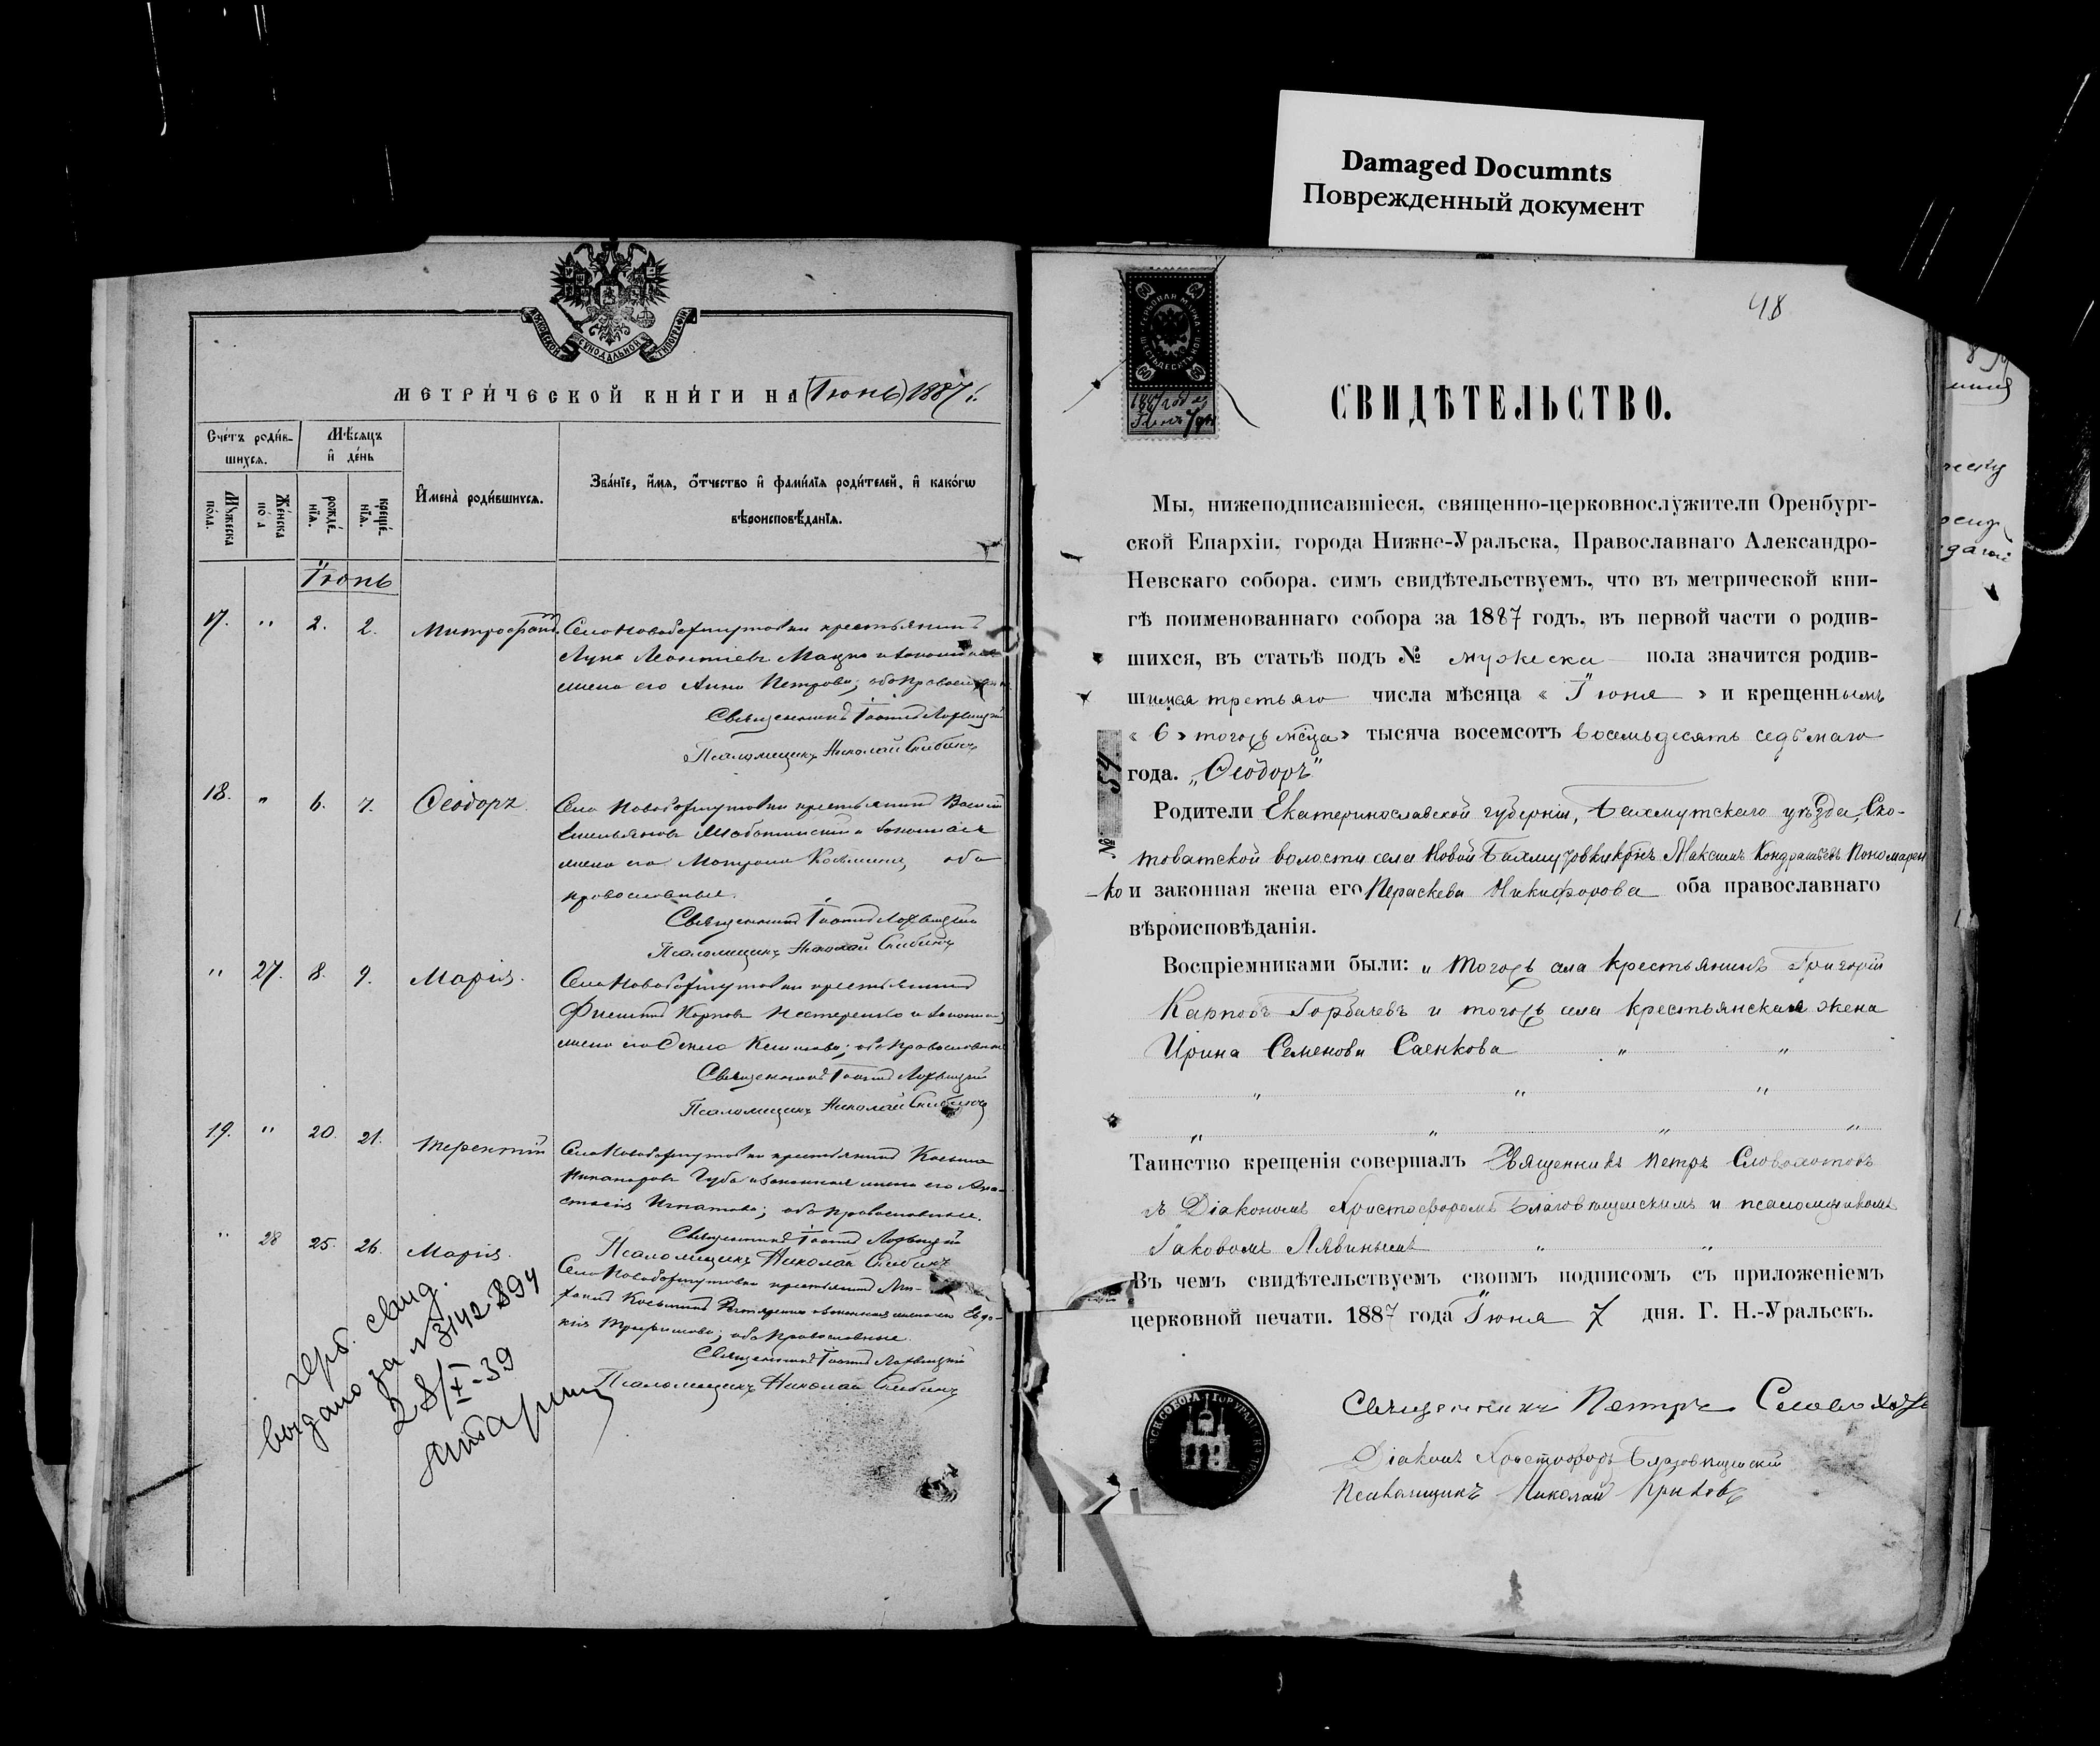 Damaged Documnts
Поврежденный документ
МОСКОВСКОЙ СѴНОДАЛЬНОЙ ТИПОГРАФІИ
МЕТРИ́ЧЕСКОЙ КНИ́ГИ НА (Іюнь) 1887 г.
Счётъ роди́в-
шихся.
Мѣсяцъ
и҆ де́нь
Мꙋжеска
по́ла.
Же́нска
по́ла
рожде́-
нїѧ.
креще́-
нїѧ.
И҆мена̀ роди́вшихся.
Зва́нїе, и҆́мя, ѻ҆́тчество и҆ фами́лїя роди́телей, и҆ како́гѡ
вѣроисповѣ́данїя.
Іюнь
17. " 2. 2. Митрофанъ. Села Новобахмутовки крестьянинъ
Лука Леонтіевъ Мацко и законная
жена его Анна Петрова; оба православные
Священникъ Іоаннъ
Псаломщикъ Николай Скибинъ
18. " 6. 7. Ѳеодоръ. Села Новобахмутовки крестьянинъ Василій
Емельяновъ и законная
жена его Матрона Косьмина, оба
православные.
Священникъ Іоаннъ
Псаломщикъ Николай Скибинъ
" 27. 8. 9. Марія. Села Новобахмутовки крестьянинъ
Карповъ Нестеренко и законная
жена его; оба православные
Священникъ Іоаннъ
Псаломщикъ Николай Скибинъ
19. " 20. 21. Терентій Села Новобахмутовки крестьянинъ Косьма
Никаноровъ Губа и законная жена его Ана-
стасія Игнатова; оба православные.
Священникъ Іоаннъ
Псаломщикъ Николай Скибинъ
" 28 25. 26. Марія. Села Новобахмутовки крестьянинъ
Косьминъ и законная жена его Евдо-
кія Трофимова; оба православные.
Священникъ Іоаннъ
Псаломщикъ Николай Скибинъ
свид.
выдано за № 3142894
28/X-39
48
ГЕРБОВАЯ МАРКА
ШЕСТЬДЕСЯТЪ КОП.
60 60
60 60
1887 года
Іюня 7 дня
СВИДѢТЕЛЬСТВО.
Мы, нижеподписавшіеся, священно-церковнослужители Оренбург-
ской Епархіи, города Нижне-Уральска, Православнаго Александро-
Невскаго собора, симъ свидѣтельствуемъ, что въ метрической кни-
гѣ поименованнаго собора за 1887 годъ, въ первой части о родив-
шихся, въ статьѣ подъ № мужеска пола значится родив-
шимся третьяго числа мѣсяца « Іюня » и крещеннымъ
« 6 » тогожъ мѣсца» тысяча восемсотъ восемьдесятъ седьмаго
№ 54
года. „Ѳеодоръ"
Родители Екатеринославской губерніи, Бахмутскаго уѣзда, Ско-
товатской волости села Новой Бахмутовки крнъ Максимъ Кондратьевъ Пономарен
-ко и законная жена его Параскева Никифорова оба православнаго
вѣроисповѣданія.
Воспріемниками были: " тогожъ села крестьянинъ Григорій
Карповъ Горбачевъ и тогожъ села крестьянская жена
Ирина Семенова Саенкова " "
" " "
" " " "
Таинство крещенія совершалъ Священникъ Петръ Словохотовъ
съ Діакономъ Христофоромъ Благовѣщенскимъ и псаломщикомъ
Іаковомъ Лявинымъ " "
Въ чемъ свидѣтельствуемъ своимъ подписомъ съ приложеніемъ
церковной печати. 1887 года Іюня 7 дня. Г. Н.-Уральскъ.
Священникъ Петръ Словохотовъ
Діаконъ Христофоръ Благовѣщенскій
Псаломщикъ Николай